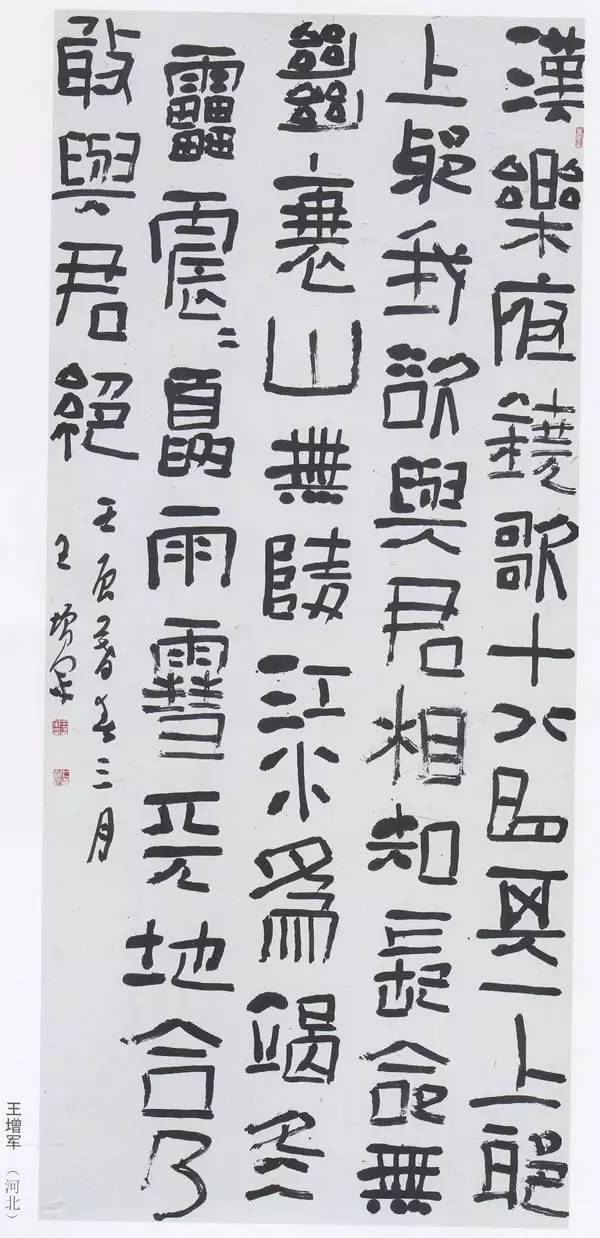 漢樂府鐃歌十八曲其一上邪
上邪我欲與君相知長命無
絕衰山無陵江水為竭冬
雷震〻夏雨雪天地合乃
敢與君絕
壬辰暮春三月
王增军
王增军（河北）